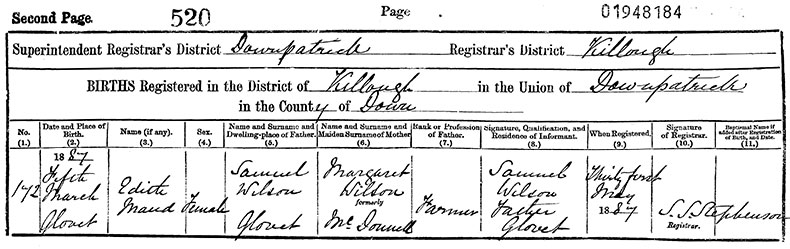 Second Page. 520 Page 01948184
Superintendent Registrar's District Downpatrick Registrar's District Killough
BIRTHS Registered in the District of Killough in the Union of Downpatrick
in the County of Down
No. (1.)
Date and Place of Birth. (2.)
Name (if any). (3.)
Sex. (4.)
Name and Surname and Dwelling-place of Father. (5.)
Name and Surname and Maiden Surname of Mother. (6.)
Rank or Profession of Father. (7.)
Signature, Qualification, and Residence of Informant. (8.)
When Registered. (9.)
Signature of Registrar. (10.)
Baptismal Name if added after Registration of Birth, and Date. (11.)
172
1887
Fifth
March
Glovet
Edith
Maud
Female
Samuel
Wilson
Glovet
Margaret
Wilson
formerly
McDonnell
Farmer
Samuel
Wilson
Father
Glovet
Thirty first
May
1887
S. S. Stephenson
Registrar.